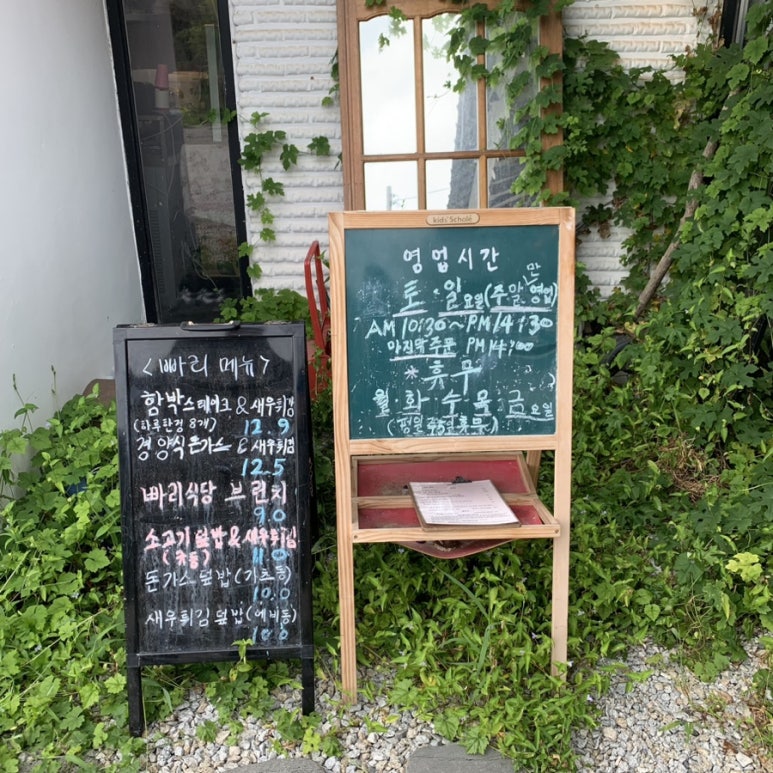 <빠리 메뉴>
함박스테이크 & 새우튀김
(하루한정 8개) 12.9
경양식돈가스 & 새우튀김
12.5
빠리식당 브런치
9.0
소고기 덮밥 & 새우튀김
(규동) 11.0
돈가스 덮밥(가츠동)
10.0
새우튀김 덮밥(에비동)
10.0
kids' Scholé
영업시간
토·일요일(주말만영업)
AM 10:30~PM 14:30
마지막주문 PM 14:00
*휴무
월·화·수·목·금요일
(평일 5일휴무)